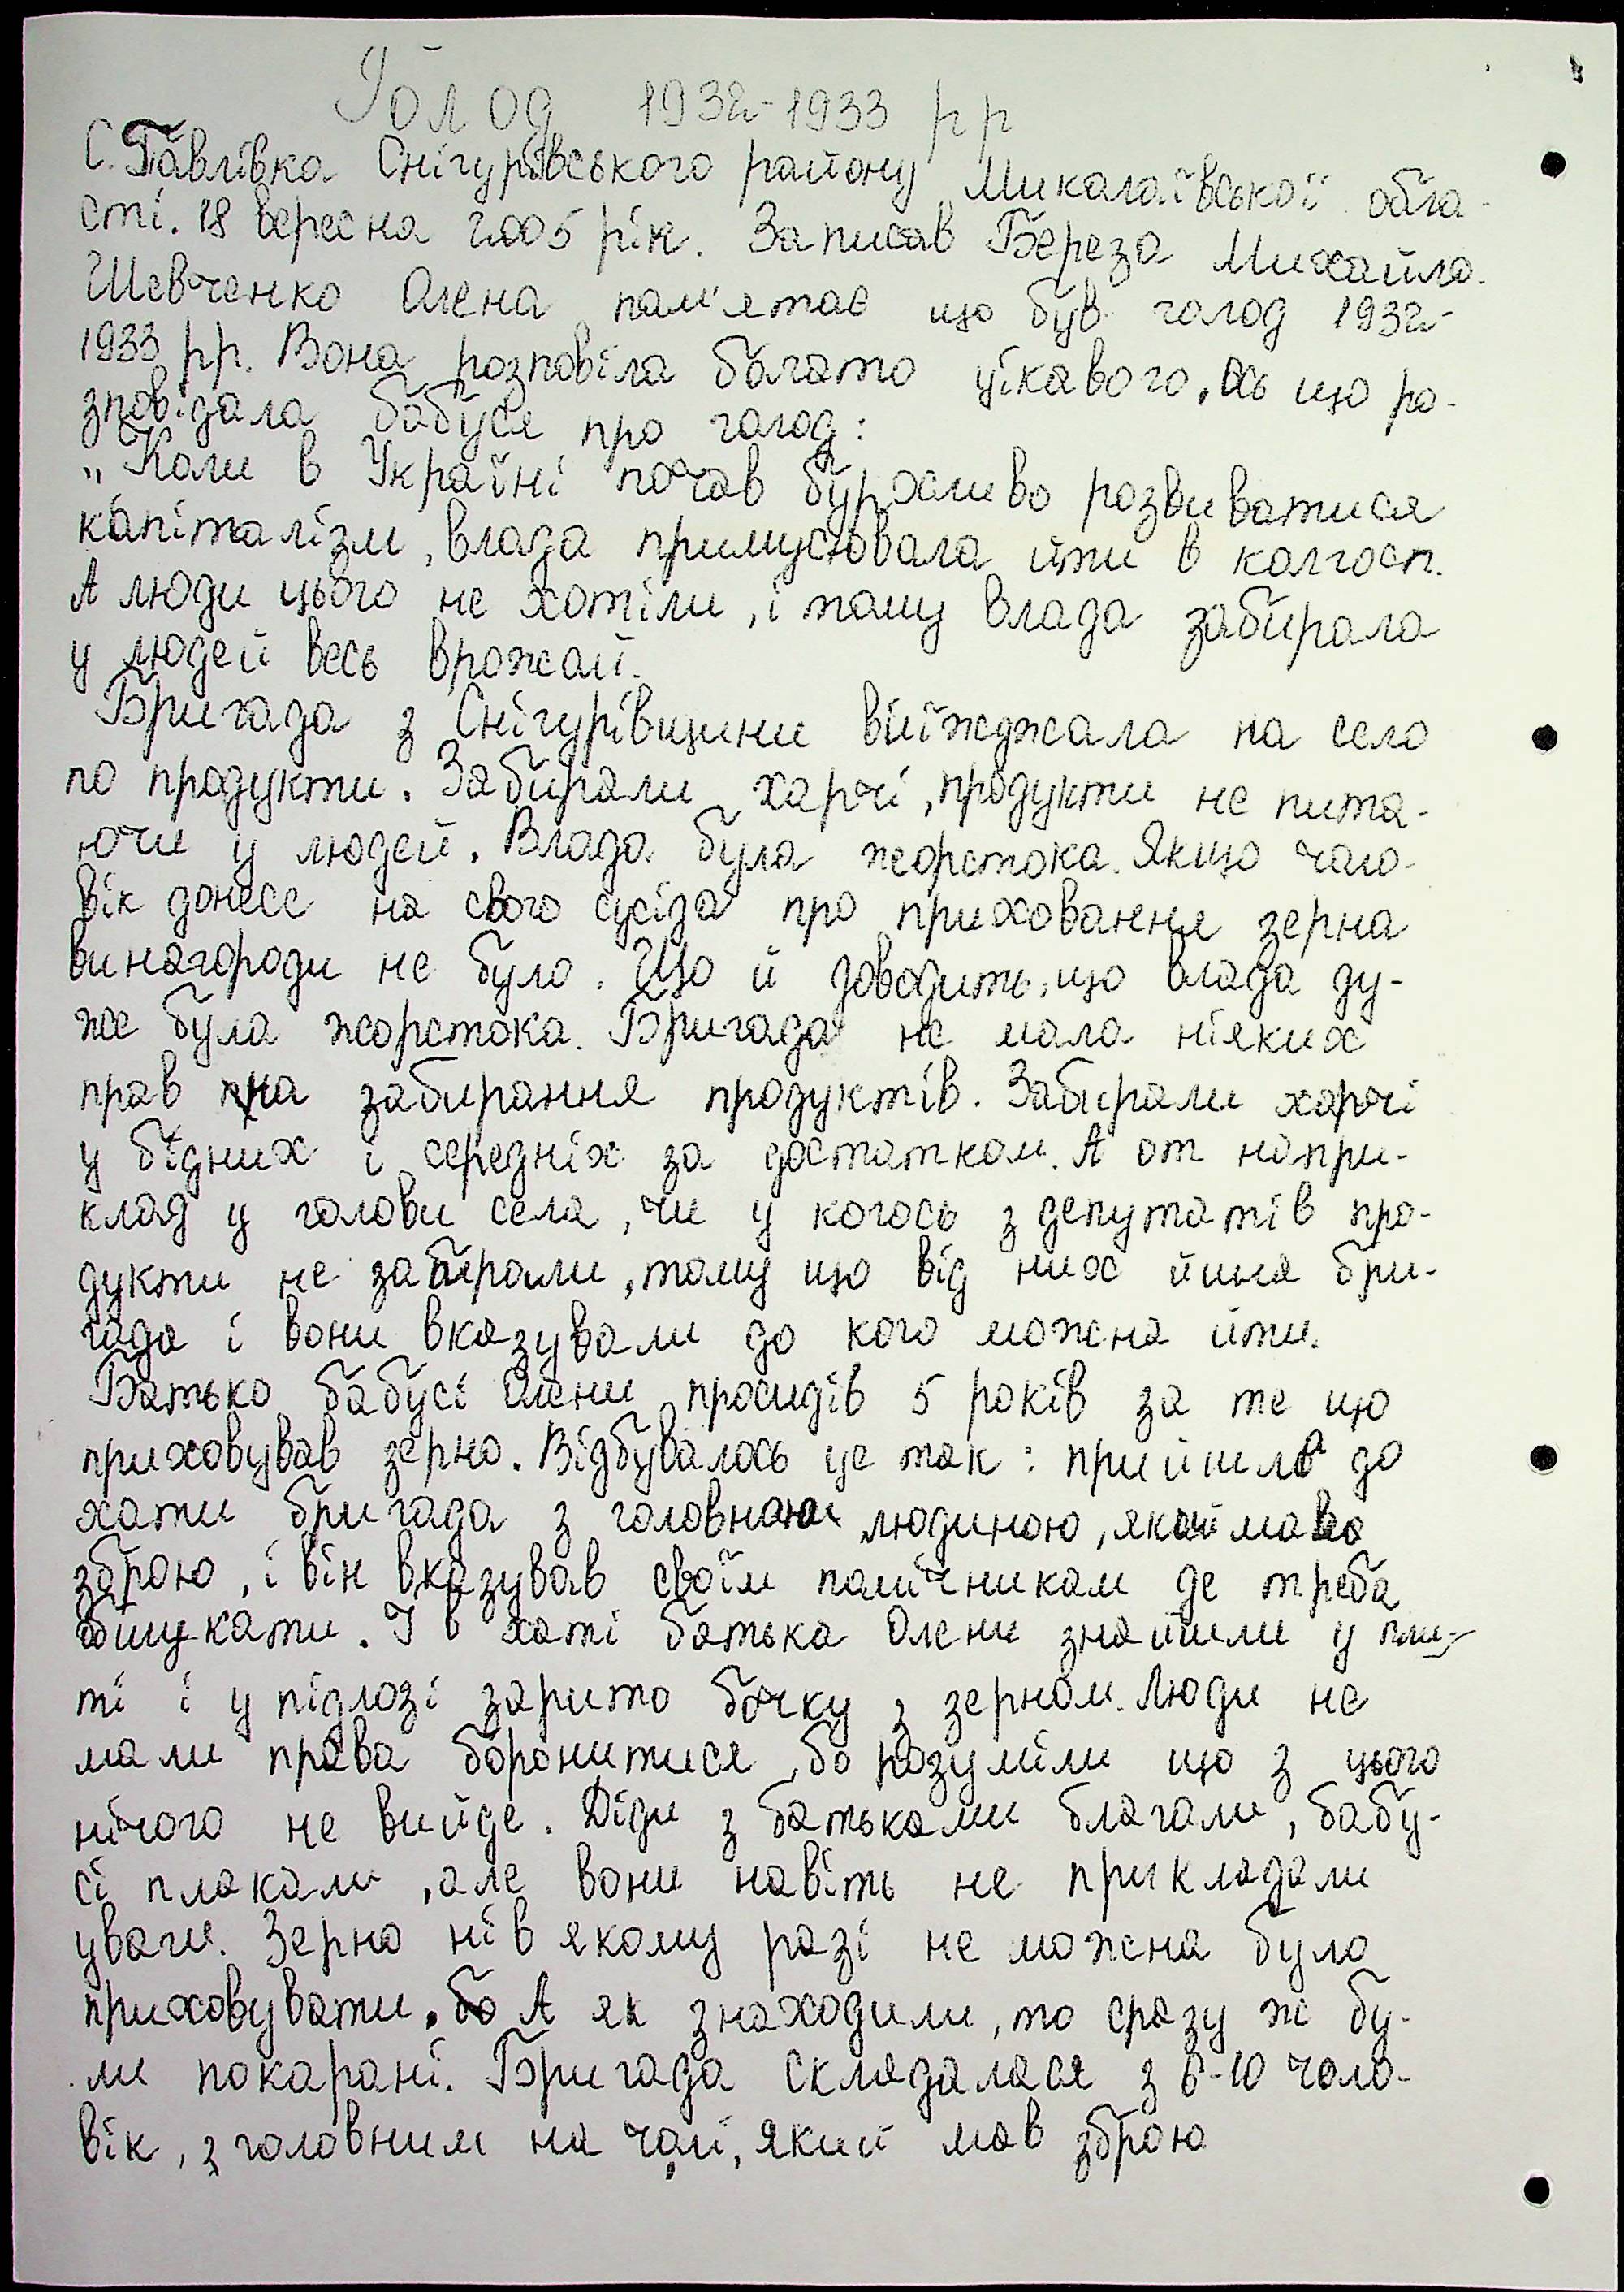 Голод 1932-1933 рр
С. Павлівка Снігурівського району Миколаївської обла-
сті. 18 вересня 2005 рік. Записав Береза Михайло.
Шевченко Олена пам'ятає що був голод 1932-
1933 рр. Вона розповіла багато цікавого. Ось що ро-
зповідала бабуся про голод:
„Коли в Україні почав бурхливо розвиватися
капіталізм, влада примусювала йти в колгосп.
А люди цього не хотіли, і тому влада забирала
у людей весь врожай.
Бригада з Снігурівщини виїжджала на село
по продукти. Забирали харчі, продукти не пита-
ючи у людей. Влада була жорстока. Якщо чоло-
вік донесе на свого сусіда про приховання зерна
винагороди не було. Що й доводить, що влада ду-
же була жорстока. Бригада не мала ніяких
прав на забирання продуктів. Забирали харчі
у бідних і середніх за достатком. А от напри-
клад у голови села, чи у когось з депутатів про-
дукти не забирали, тому що від них йшла бри-
гада і вони вказували до кого можна йти.
Батько бабусі Олени просидів 5 років за те що
приховував зерно. Відбувалось це так: прийшла до
хати бригада з головною людиною, який мав
зброю, і він вказував своїм помічникам де треба
шукати. І в хаті батька Олени знайшли у пли-
ті і у підлозі зарито бочку з зерном. Люди не
мали права боронитися, бо розуміли що з цього
нічого не вийде. Діди з батьками благали, бабу-
сі плакали, але вони навіть не прикладали
уваги. Зерно ні в якому разі не можна було
приховувати. бо А як знаходили, то сразу ж бу-
ли покарані. Бригада складалася з 6-10 чоло-
вік, з головним на чолі, який мав зброю